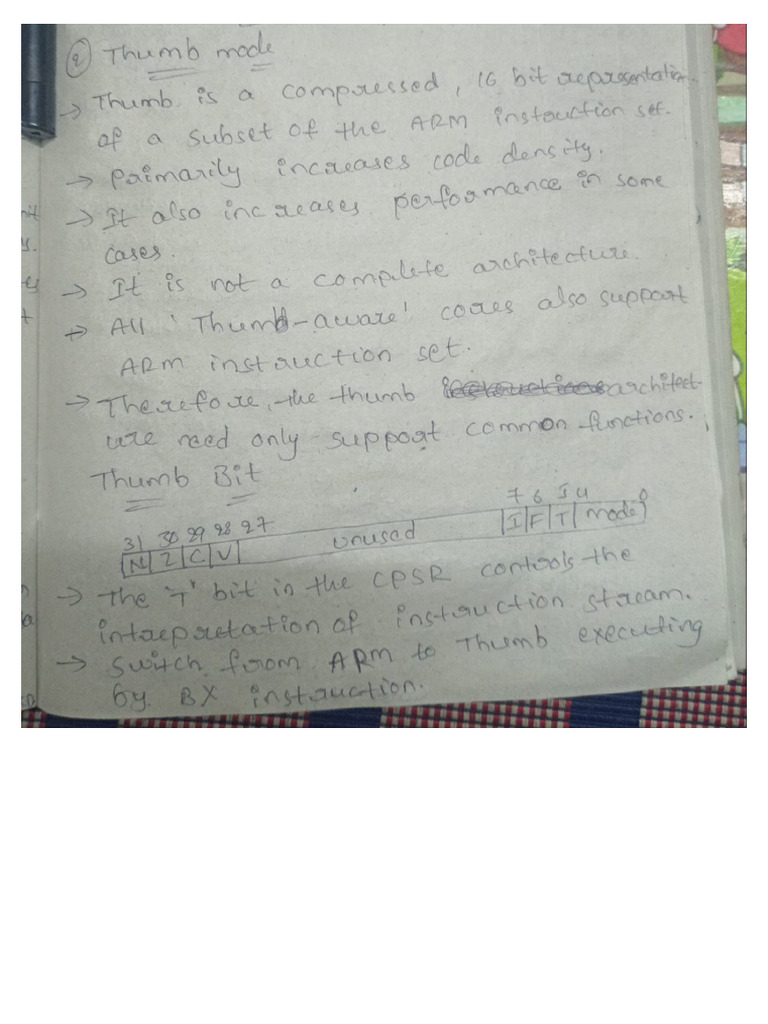 ② Thumb mode
→ Thumb is a compressed, 16 bit representation
of a subset of the ARM instruction set.
→ Primarily increases code density.
→ It also increases performance in some
cases.
→ It is not a complete architecture.
→ All 'Thumb-aware' cores also support
ARM instruction set.
→ Therefore, the thumb architect-
ure need only support common functions.
Thumb Bit
31 30 29 28 27 7 6 5 4 0
N Z C V unused I F T mode
→ The 'T' bit in the CPSR controls the
intrepretation of instruction stream.
→ Switch from ARM to Thumb executing
by BX instruction.